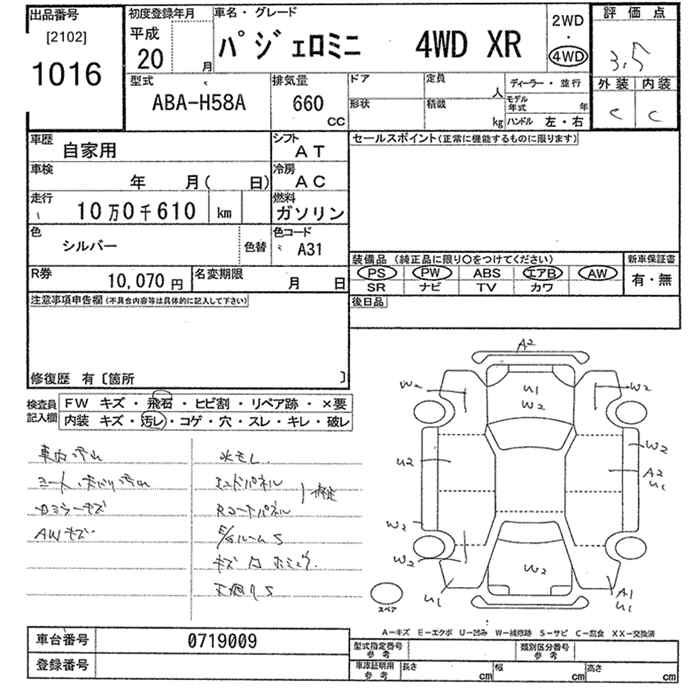 出品番号
[2102]
1016
初度登録年月
平成
20 月
車名・グレード
パジェロミニ 4WD XR
2WD
・
4WD
評価点
3.5
外装 内装
C C
型式
ABA-H58A
排気量
660
cc
ドア
形状
定員
人
積載
kg
ディーラー・並行
モデル年式 年
ハンドル 左・右
車歴
自家用
シフト
AT
車検
年 月( 日)
冷房
AC
走行
10万0千610 km
燃料
ガソリン
色
シルバー
色替
色コード
A31
R券
10,070円
名変期限
月 日
セールスポイント(正常に機能するものに限ります)
装備品(純正品に限り〇をつけてください)
PS PW ABS エアB AW
SR ナビ TV カワ
新車保証書
有・無
後日品
注意事項申告欄(不具合内容等は具体的に記入して下さい)
修復歴 有〔箇所 〕
検査員
記入欄
FW キズ・飛石・ヒビ割・リペア跡・×要
内装 キズ・汚レ・コゲ・穴・スレ・キレ・破レ
車内汚れ
AWキズ
A2
W2
U1
W2
W2
U2
W2
A2
U1
W2
W2
W2
U1
A1
U1
スペア
A-キズ E-エクボ U-凹み W-補修跡 S-サビ C-腐食 XX-交換済
車台番号
0719009
登録番号
型式指定番号
参考
類別区分番号
参考
車庫証明用
参考
長さ cm
幅 cm
高さ cm